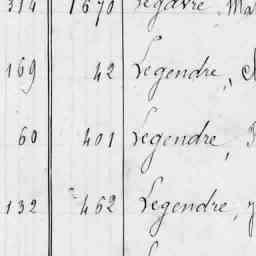 314 1670 Legavre, Ma
169 42 Legendre,
60 401 Legendre,
132 462 Legendre,